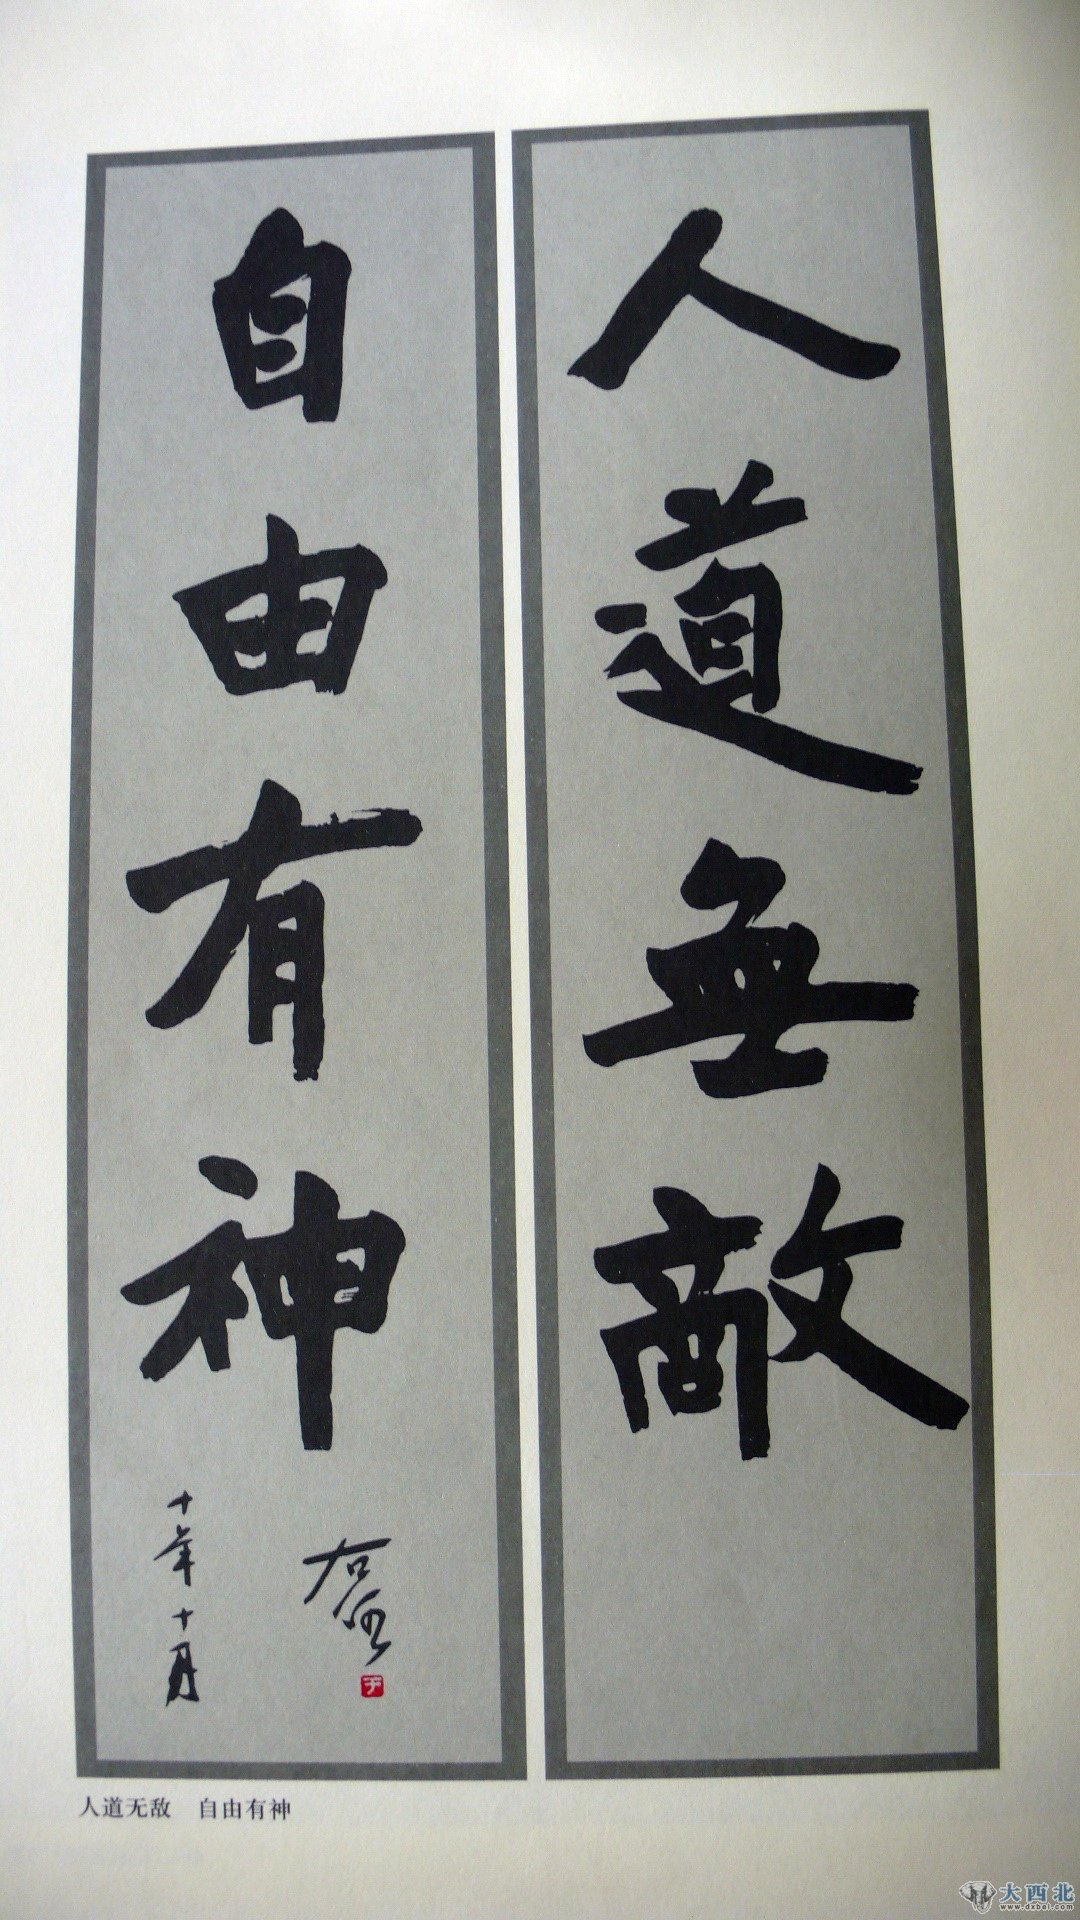 人道無敵
自由有神
右任
十年十月
人道无敌　自由有神
大西北
www.dxbei.com